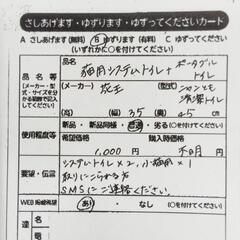 さしあげます・ゆずります・ゆずってくださいカード
A さしあげます(無料) B ゆずります(有料) C ゆずってください
(いずれかに○を付けてください)
品名等
(メーカー・型式・サイズを分かる範囲で記入してください)
(品名)
猫用システムトイレ+ポータブルトイレ
(メーカー)
花王
ニャンとも清潔トイレ
(高) (幅) 35 (奥) 45 cm
使用程度等
新品・新品同様・普通・劣る(○を付けてください)
希望価格
1,000 円
購入時価格
不明 円
要望・伝言
システムトイレ×2, 小猫用×1
取りにこられる方
SMSにご連絡ください。
WEB掲載希望
あり・なし(○を付けてください)
達